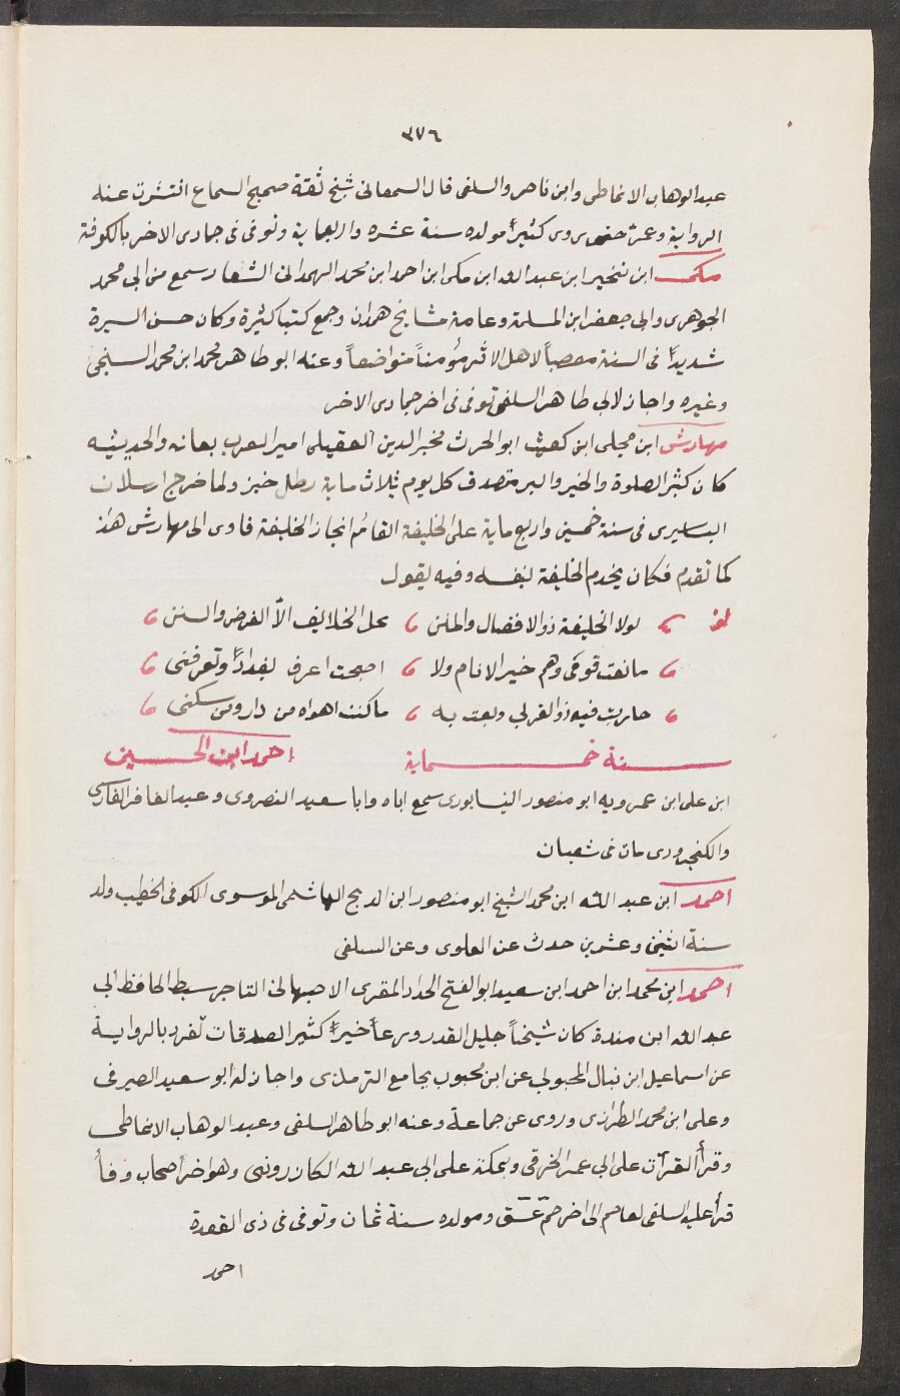 ٣٧٦
عبد الوهاب الانماطى وابن ناصر والسلفى قال السمعانى شيخ ثقة صحيح السماع انتشرت عنه
الرواية وعن حفص روى كثيراً مولده سنة عشره واربعماية وتوفى فى جمادى الاخر بالكوفة
مكى ابن بنخير ابن عبد الله ابن مكى ابن احمد ابن محمد الهمدانى الشعار سمع من ابى محمد
الجوهرى وابى جعفر ابن المسلمة وعامة مشايخ همدان وجمع كتبا كثيرة وكان حسن السيرة
شديداً فى السنة معصباً لاهل الاثر مؤمناً متواضعاً وعنه ابو طاهر محمد ابن محمد السنجى
وغيره واجاز لابى طاهر السلفى توفى فى اخر جمادى الاخر
مهارش ابن مجلى ابن كعيث ابو الحرث مخبر الدين العقيلى امير العرب بعانه والحديثيه
كان كثير الصلوة والخير والبر متصدف كل يوم ثيلاث ماية رطل خبز ولما خرج ارسلان
البساسيرى فى سنة خمسين واربع ماية على الخليفة القائم انجاز الخليفة فاوى الى مهارش هذ
كما تقدم فكان يخدم الخليفة بنفسه وفيه يقول
لولا الخليفة ذو الافضال والمنن على الخلايف الآ الفرض والسنن
مانعت قومى وهم خير الانام ولا اصبحت اعرف بغداداً وتعرفنى
حاربت فيه ذو القربى وبعت به ماكنت اهواه من دار ومن سكنى
سنة خمسماية احمد ابن الحسين
ابن على ابن عمرويه ابو منصور النيسابورى سمع اباه وابا سعيد النصروى وعبد الغافر الفارسى
والكنجرودى مات فى شعبان
احمد ابن عبد الله ابن محمد الشيخ ابو منصور ابن الدبج الهاشمى الموسوى الكوفى الخطيب ولد
سنة اثنين وعشرين حدث عن العلوى وعن السلفى
احمد ابن محمد ابن احمد ابن سعيد ابو الفتح الحداد المقرى الاصبهانى التاجر سبط الحافظ ابى
عبد الله ابن مندة كان شيخاً جليل القدر ورعاً خيراً كثير الصدقات تفرد بالرواية
عن اسماعيل ابن نبال المحبوبى عن ابن محبوب بجامع الترمذى واجاز له ابو سعيد الصيرفى
وعلى ابن محمد الطرازى وروى عن جماعة وعنه ابو طاهر السلفى وعبد الوهاب الانماطى
وقرأ القرآت على ابى عمر الخرقى وبمكة على ابى عبد الله الكازرونى وهو اخر اصحاب وفاً
قرأ عليه السلفى لعاصم الى اخر حم عسق ومولده سنة ثمان وتوفى فى ذى القعدة
احمد